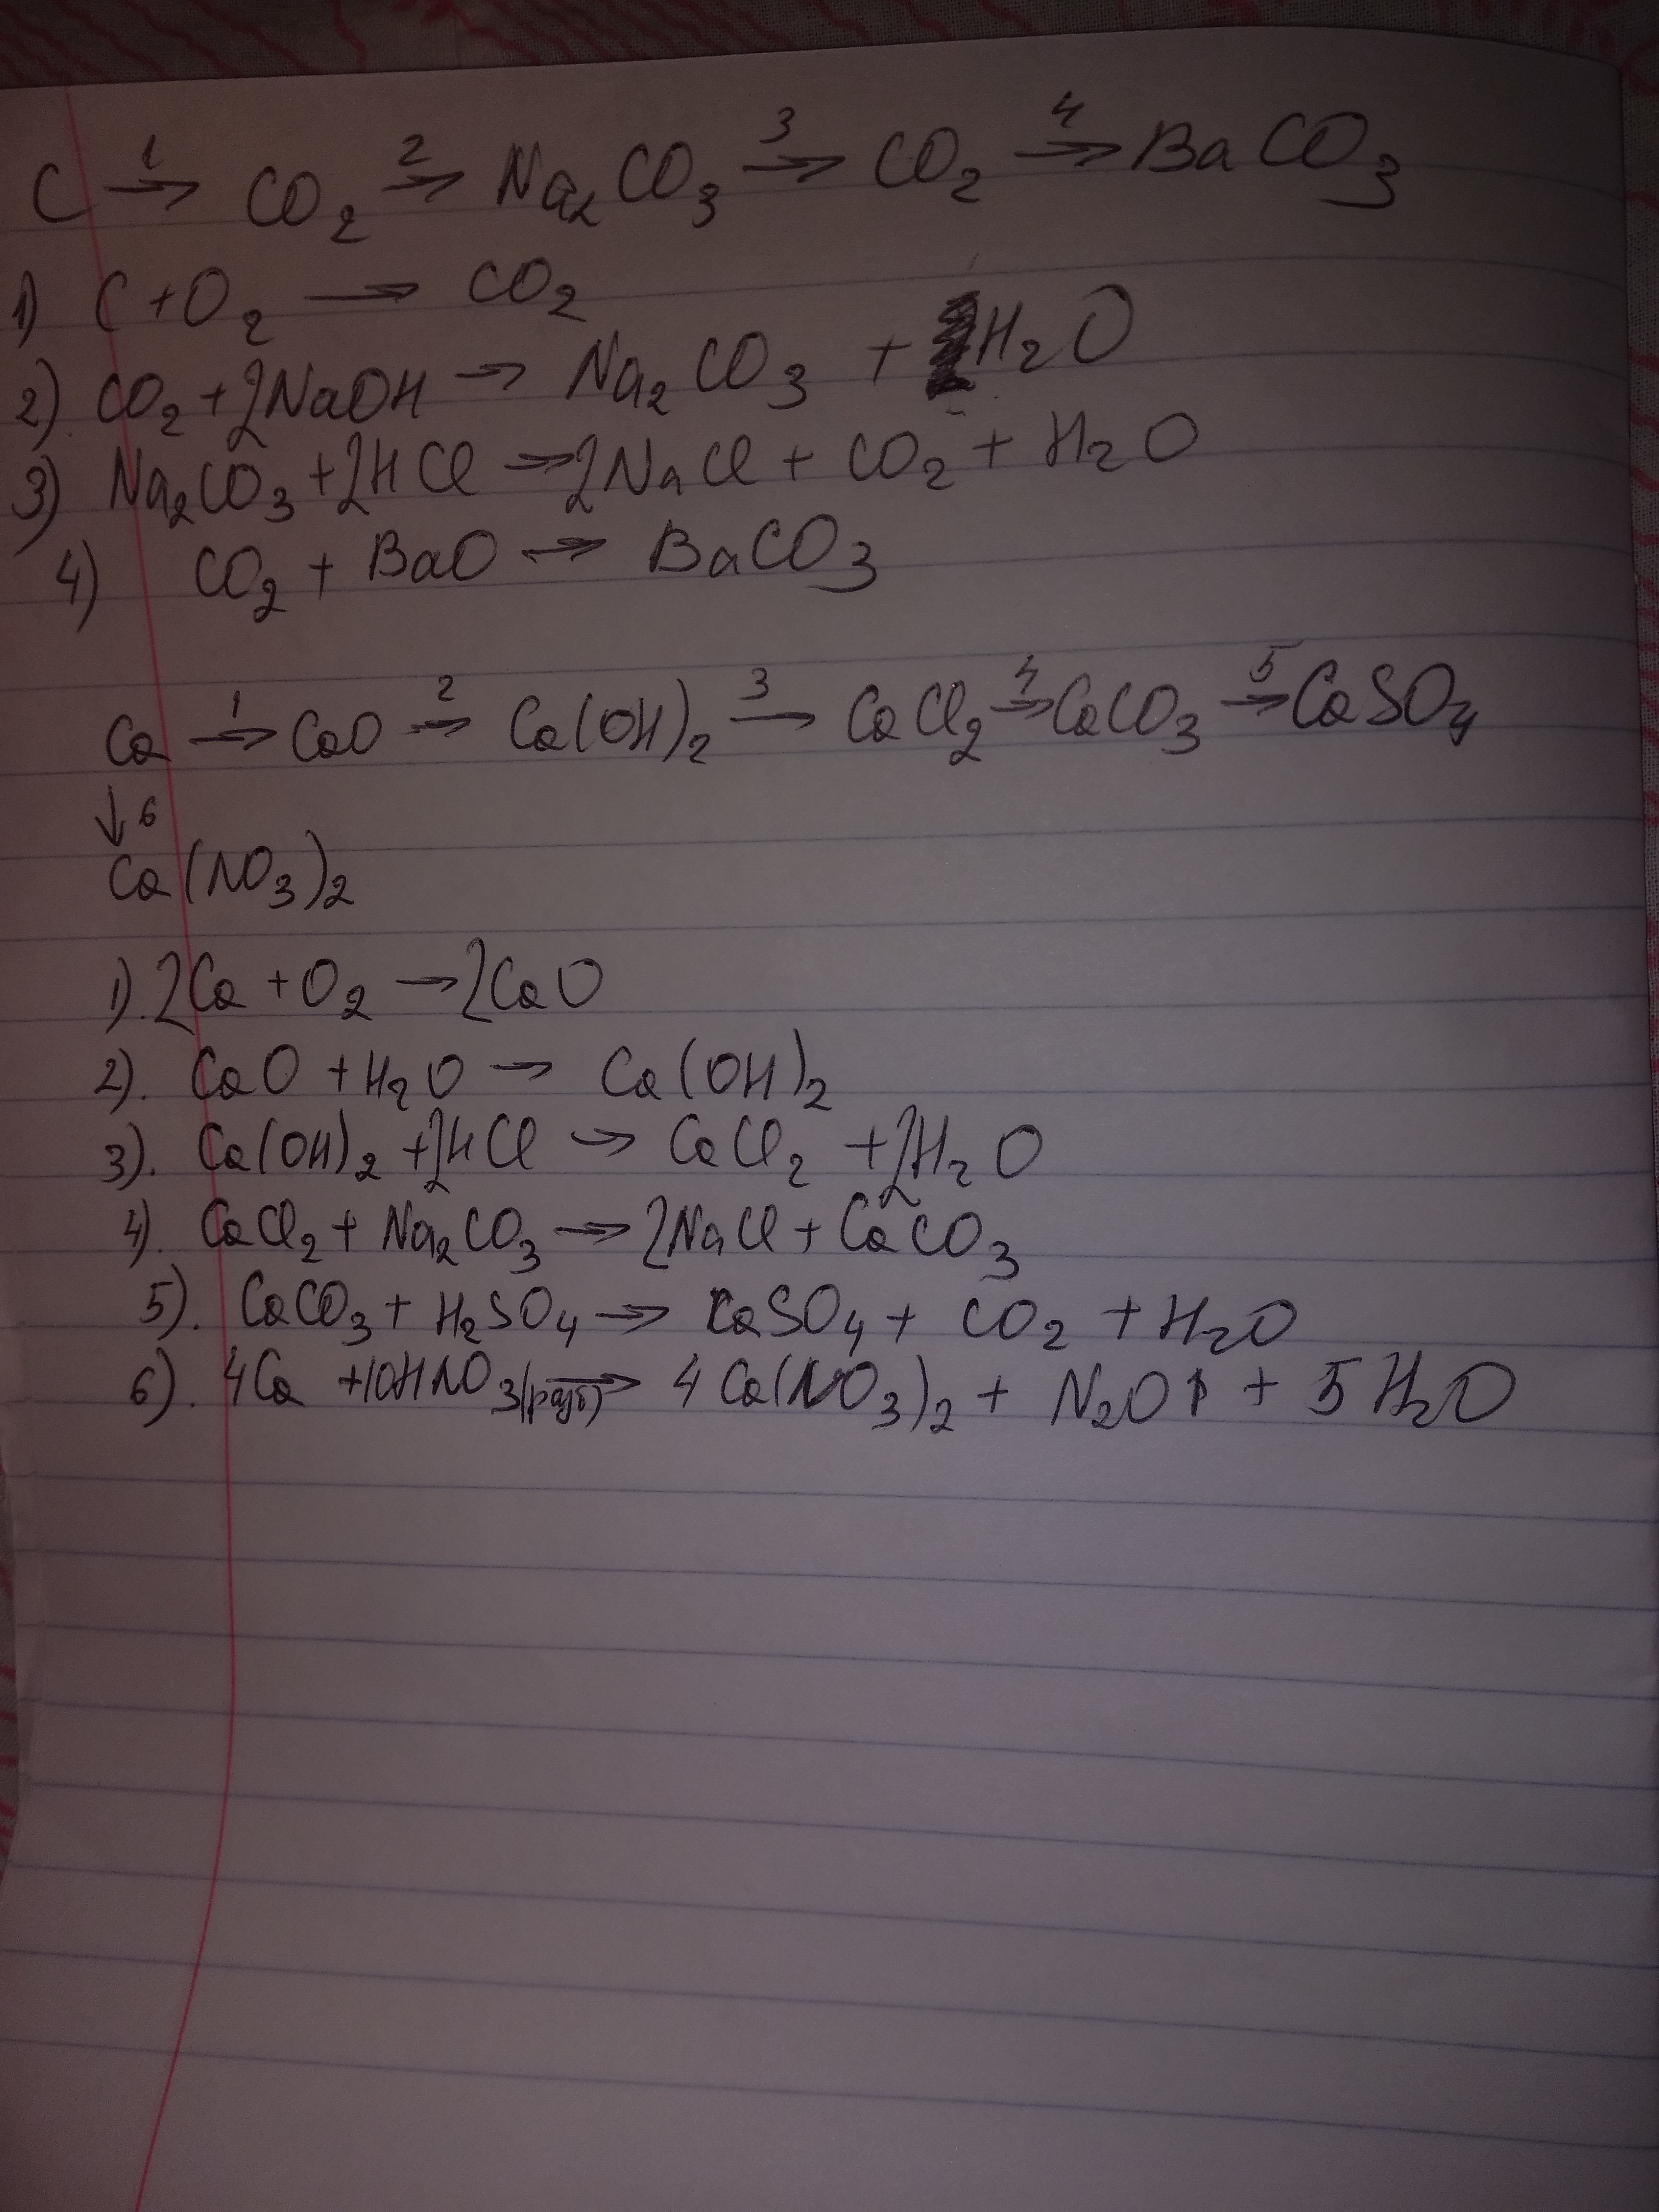 C →1 CO₂ →2 Na₂CO₃ →3 CO₂ →4 BaCO₃
1) C + O₂ → CO₂
2) CO₂ + 2NaOH → Na₂CO₃ + H₂O
3) Na₂CO₃ + 2HCl → 2NaCl + CO₂ + H₂O
4) CO₂ + BaO → BaCO₃
Ca →1 CaO →2 Ca(OH)₂ →3 CaCl₂ →4 CaCO₃ →5 CaSO₄
↓6
Ca(NO₃)₂
1). 2Ca + O₂ → 2CaO
2). CaO + H₂O → Ca(OH)₂
3). Ca(OH)₂ + 2HCl → CaCl₂ + 2H₂O
4). CaCl₂ + Na₂CO₃ → 2NaCl + CaCO₃
5). CaCO₃ + H₂SO₄ → CaSO₄ + CO₂ + H₂O
6). 4Ca + 10HNO₃(разб) → 4Ca(NO₃)₂ + N₂O↑ + 5H₂O